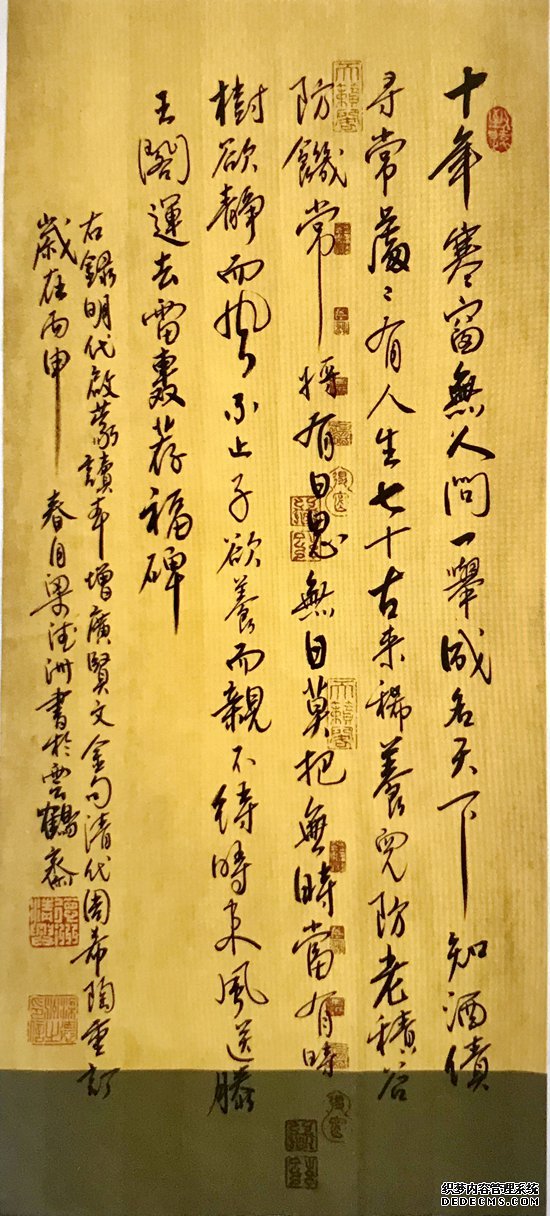 十年寒窗無人問一舉成名天下知酒債
尋常處〻有人生七十古來稀養兒防老積谷
防饑常將有日思無日莫把無時當有時
樹欲靜而風不止子欲養而親不待時来風送滕
王閣運去雷轟荐福碑
右錄明代啟蒙讀本增廣賢文金句清代周希陶重訂
歲在丙申春月梁德洲書於雲鶴齋
天籟閣
天籟閣
织梦内容管理系统
DEDECMS.COM